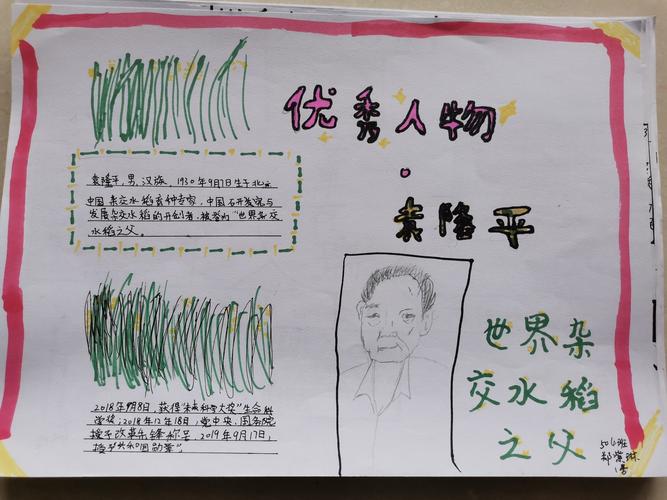 优秀人物
·
袁隆平
袁隆平,男,汉族,1930年9月7日生于北京
中国杂交水稻育种专家,中国研究与
发展杂交水稻的开创者,被誉为“世界杂交
水稻之父。
世界杂
交水稻
之父
2018年9月8日,获得未来科学大奖“生命科
学奖;2018年12月18日,党中央、国务院
授予改革先锋称号,2019年9月17日,
授予“共和国勋章”。
506班
郑紫琳
1号